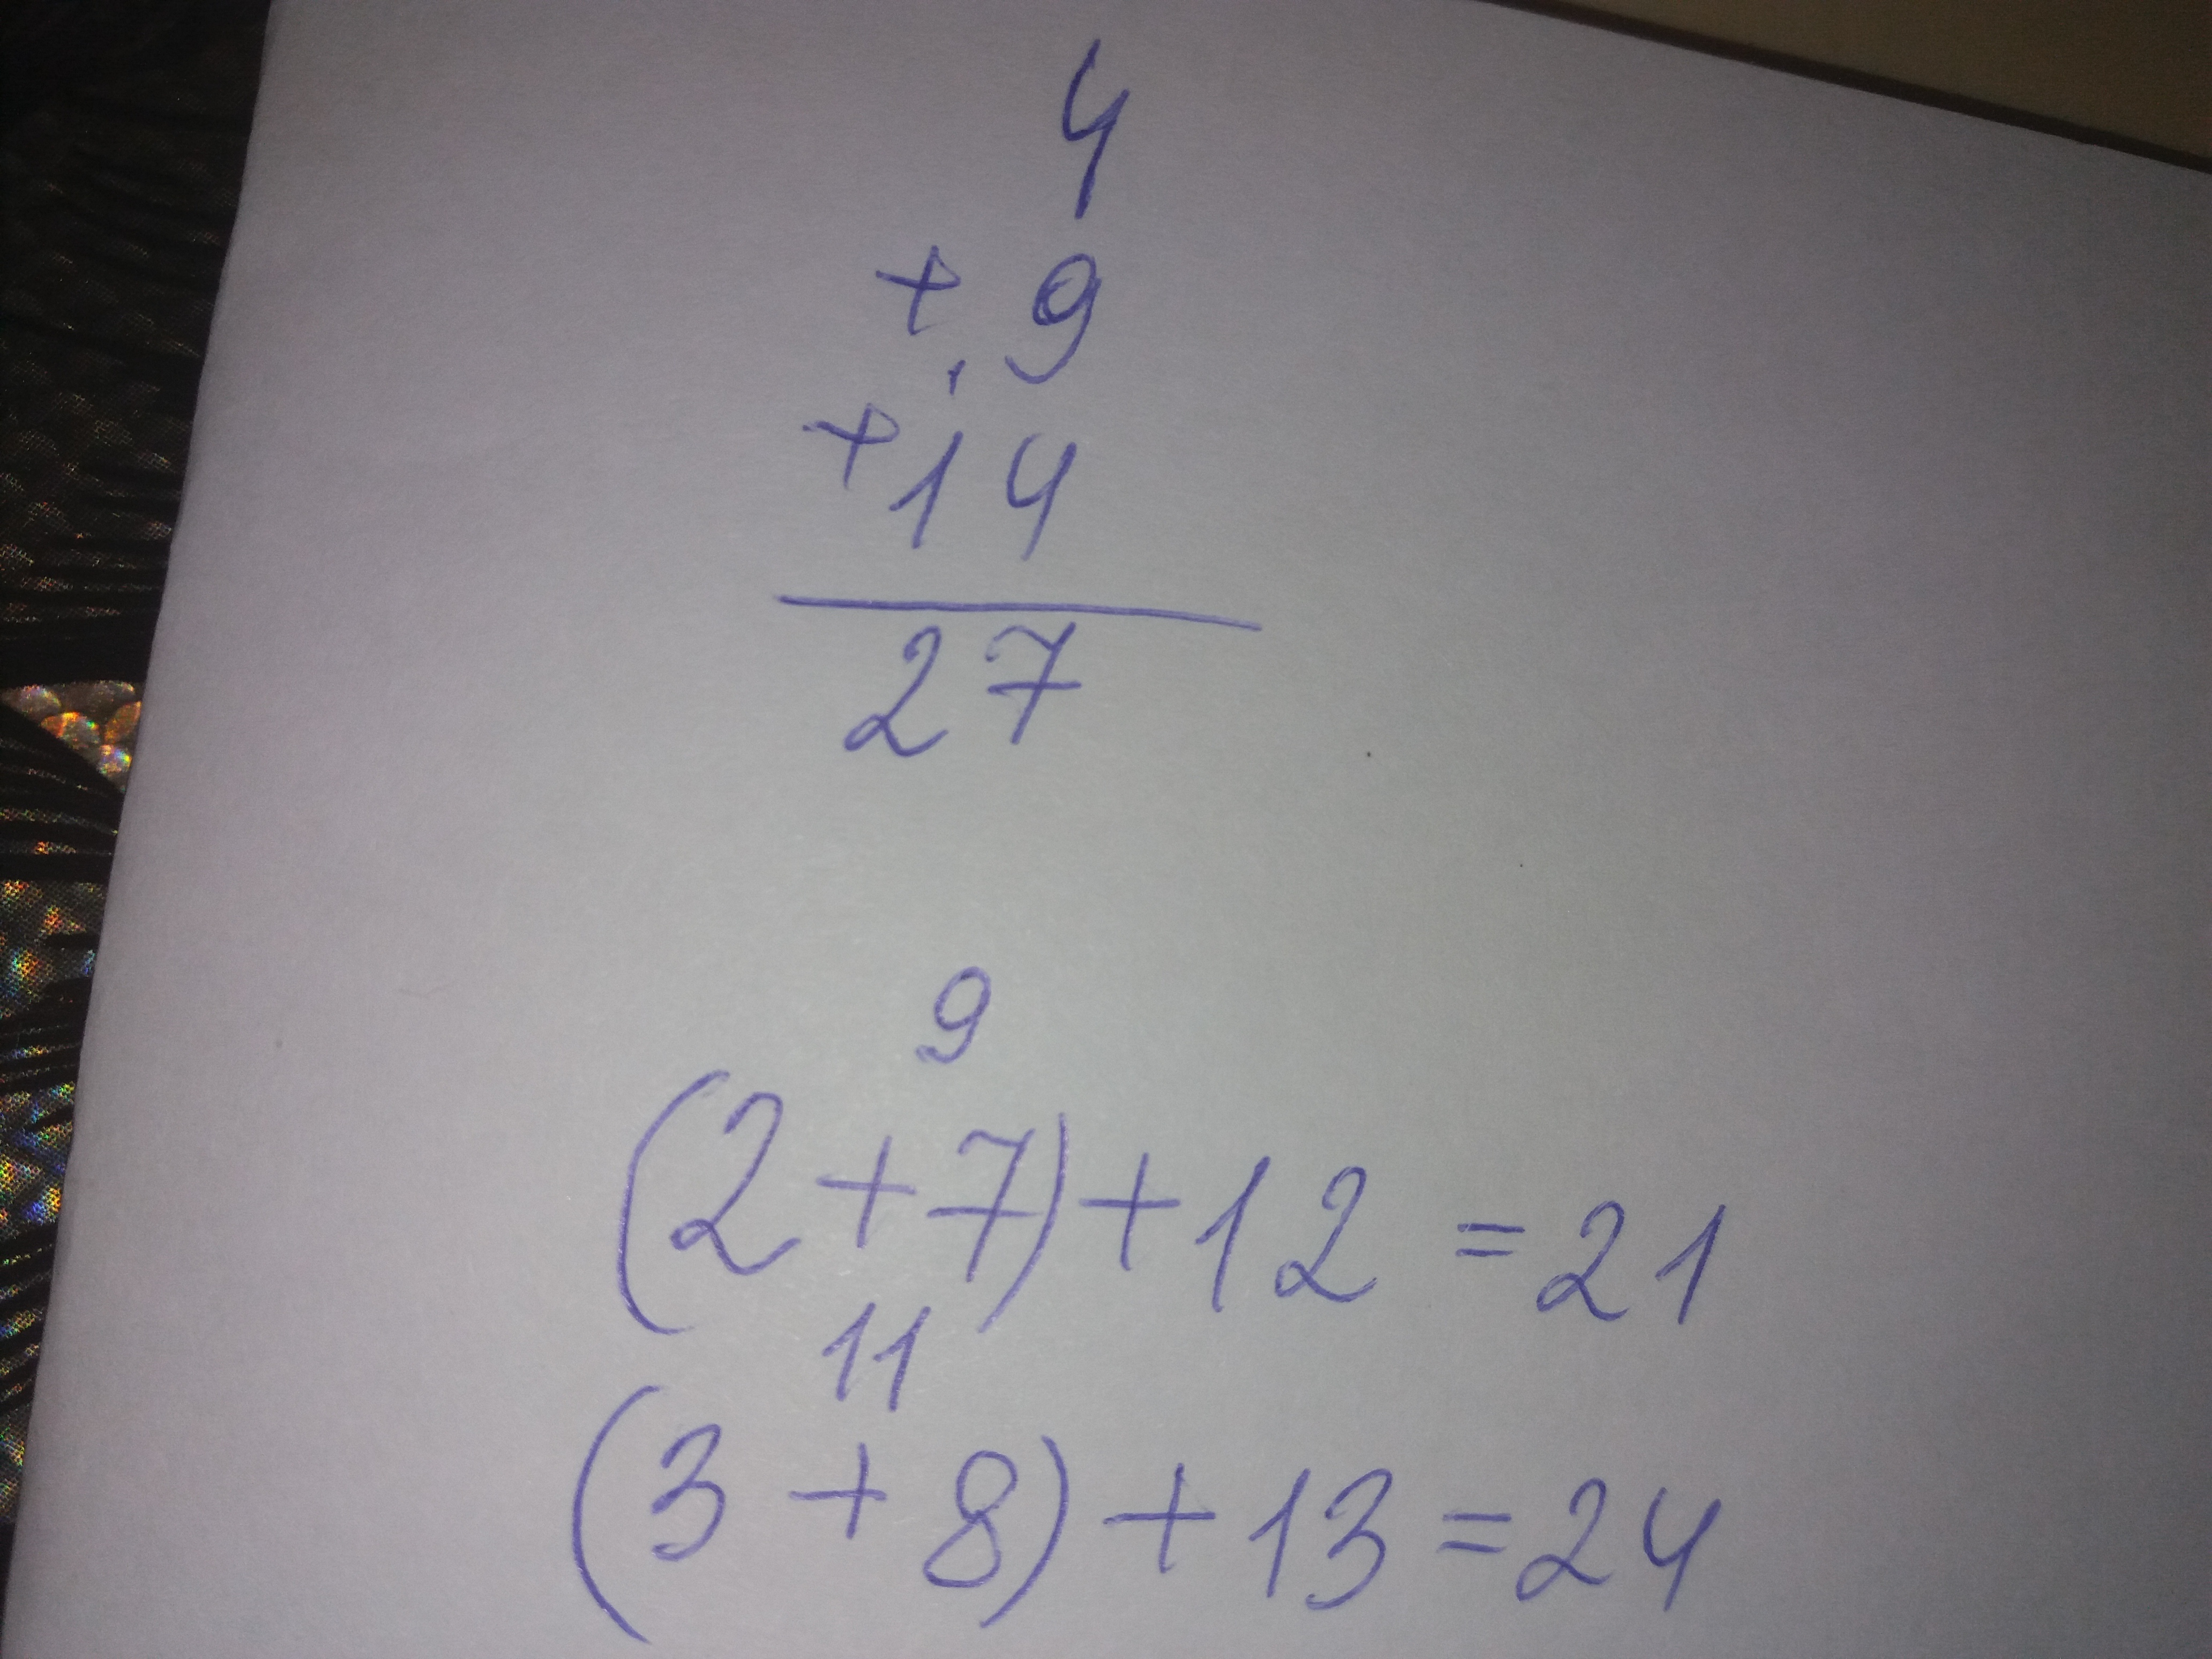 4
+ 9
+ 14
27
9
(2 + 7) + 12 = 21
11
(3 + 8) + 13 = 24